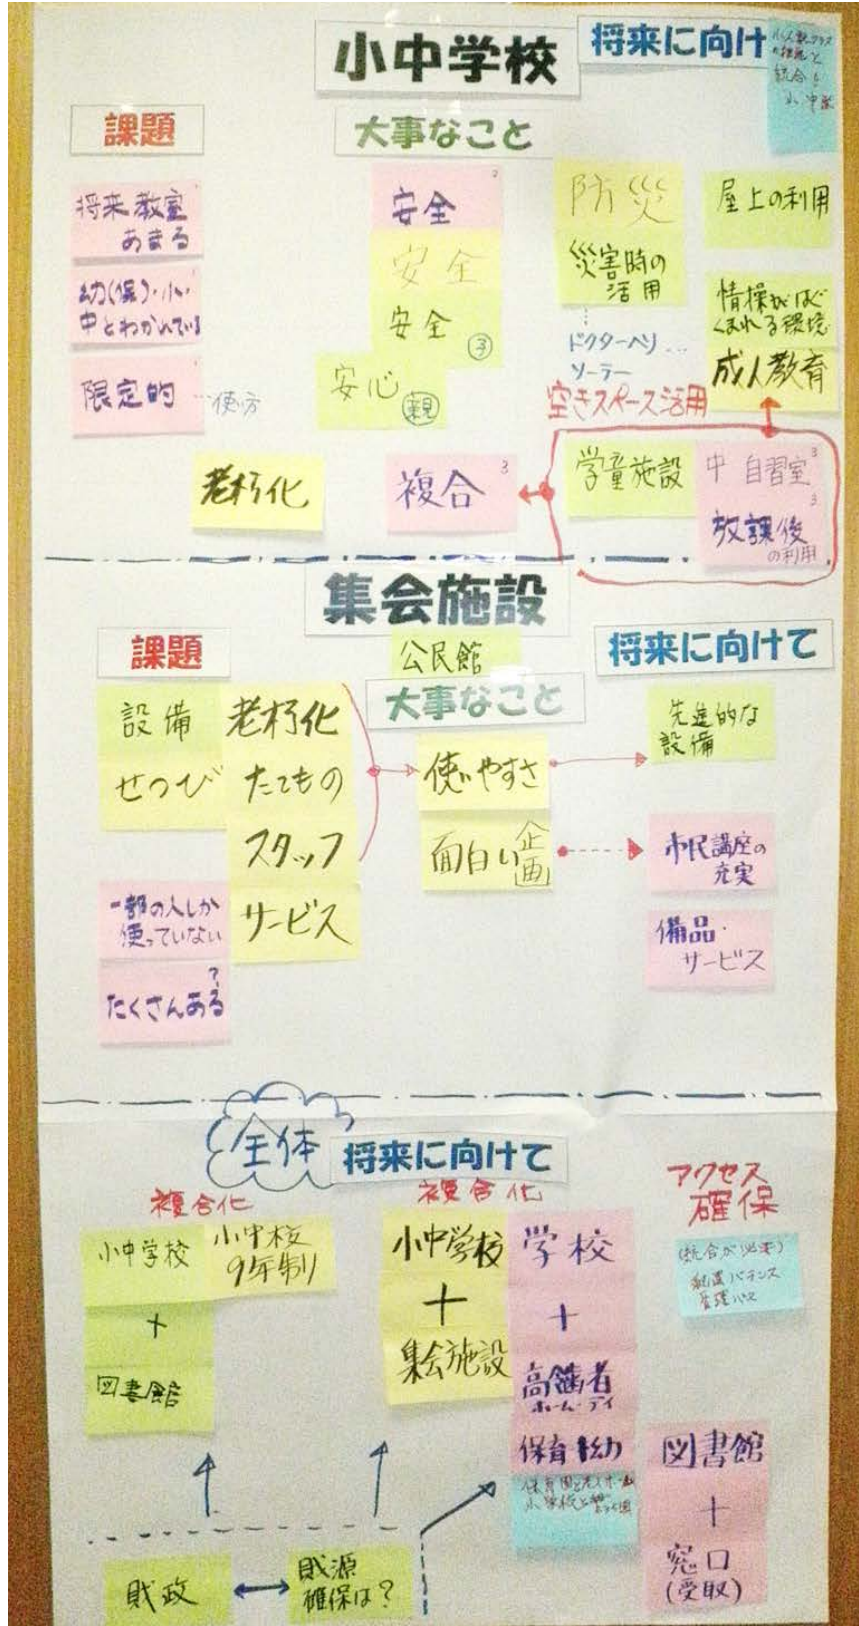 小中学校
将来に向け
小人数クラス
の推進と
統合も
課題
大事なこと
将来教室
あまる
幼(保)・小・
中とわかれている
限定的
…使方
老朽化
安全
安全
安全
子
安心
親
複合
防災
災害時の
活用
ドクターヘリ…
ソーラー
空きスペース活用
屋上の利用
情操がはぐ
くまれる環境
成人教育
学童施設
中 自習室
放課後
の利用
集会施設
課題
公民館
大事なこと
将来に向けて
設備
せつび
老朽化
たてもの
スタッフ
サービス
一部の人しか
使っていない
たくさんある?
使いやすさ
面白い企画
先進的な
設備
市民講座の
充実
備品・
サービス
全体
将来に向けて
複合化
小中学校
+
図書館
小中校
9年制
複合化
小中学校
+
集会施設
学校
+
高齢者
ホーム・デイ
保育 幼
保育園と老人ホーム
小学校と
アクセス
確保
(統合が必要)
配置バランス
図書館
+
窓口
(受取)
財政
財源
確保は?